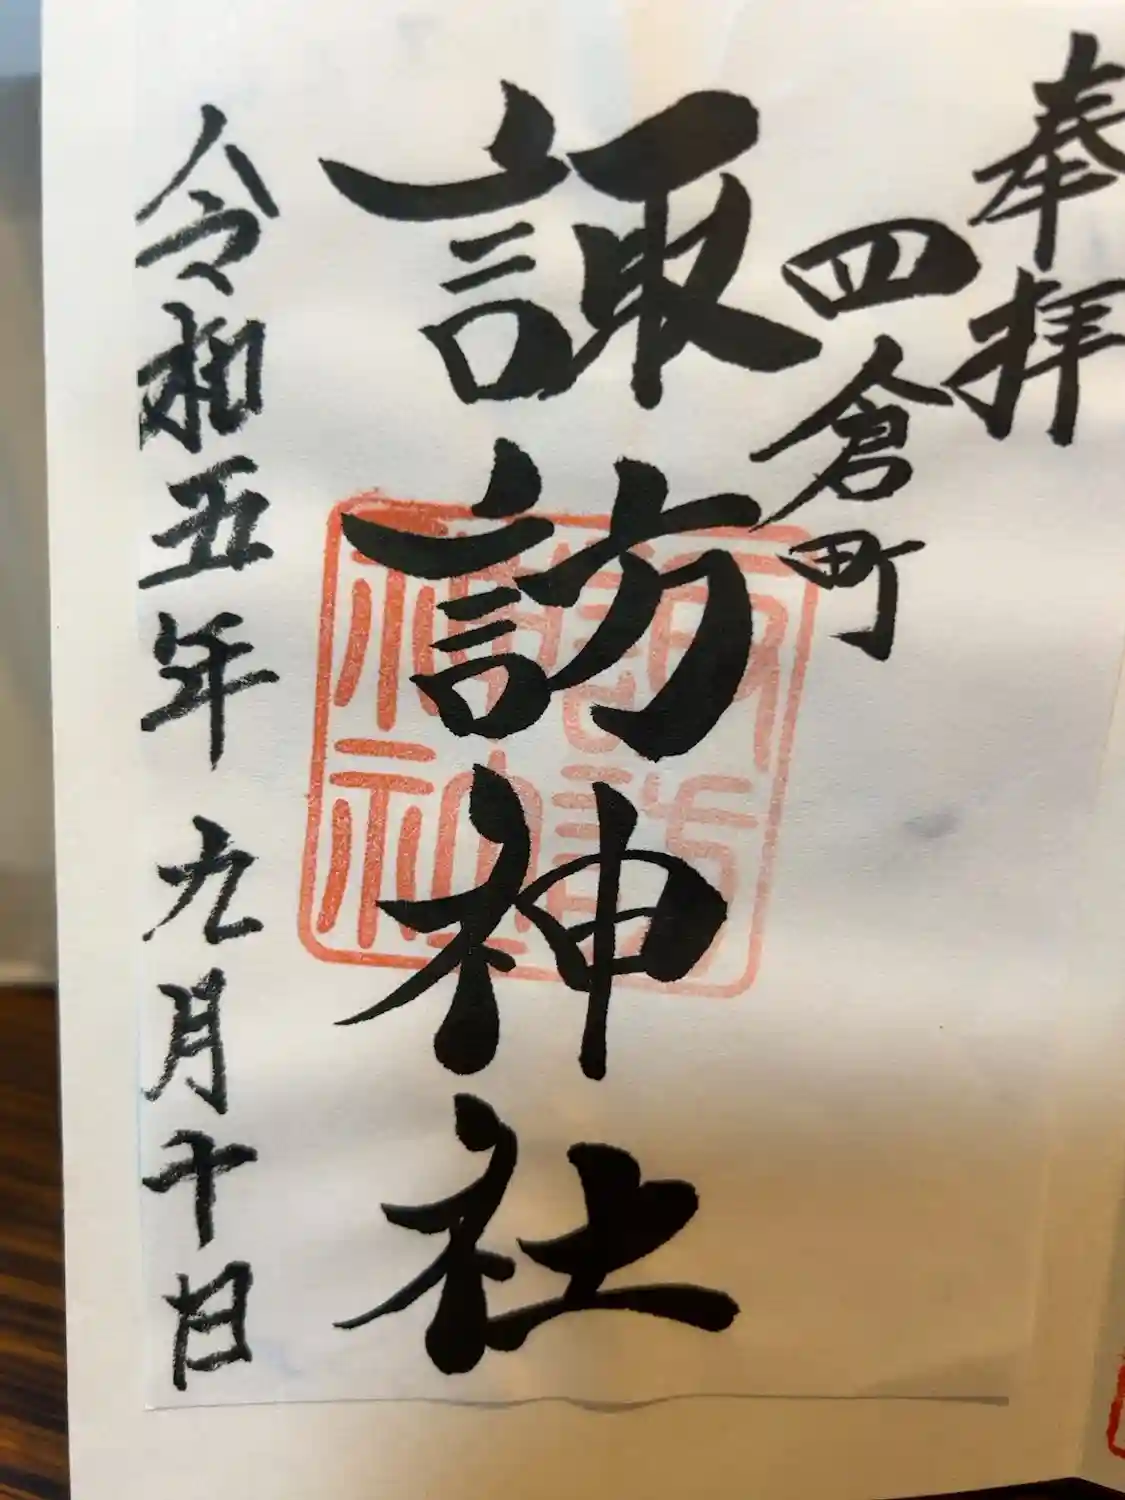 奉拝
四倉町
諏訪神社
諏訪神社
令和五年九月十日